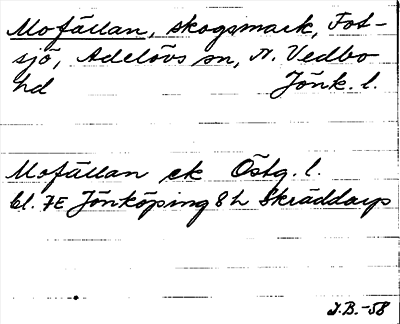 Mofällan, skogsmark, Fot-
sjö, Adelövs sn, N. Vedbo
hd Jönk. l.
Mofällan ek Östg. l.
bl. 7E Jönköping 8h Skräddarp
J.B.-58